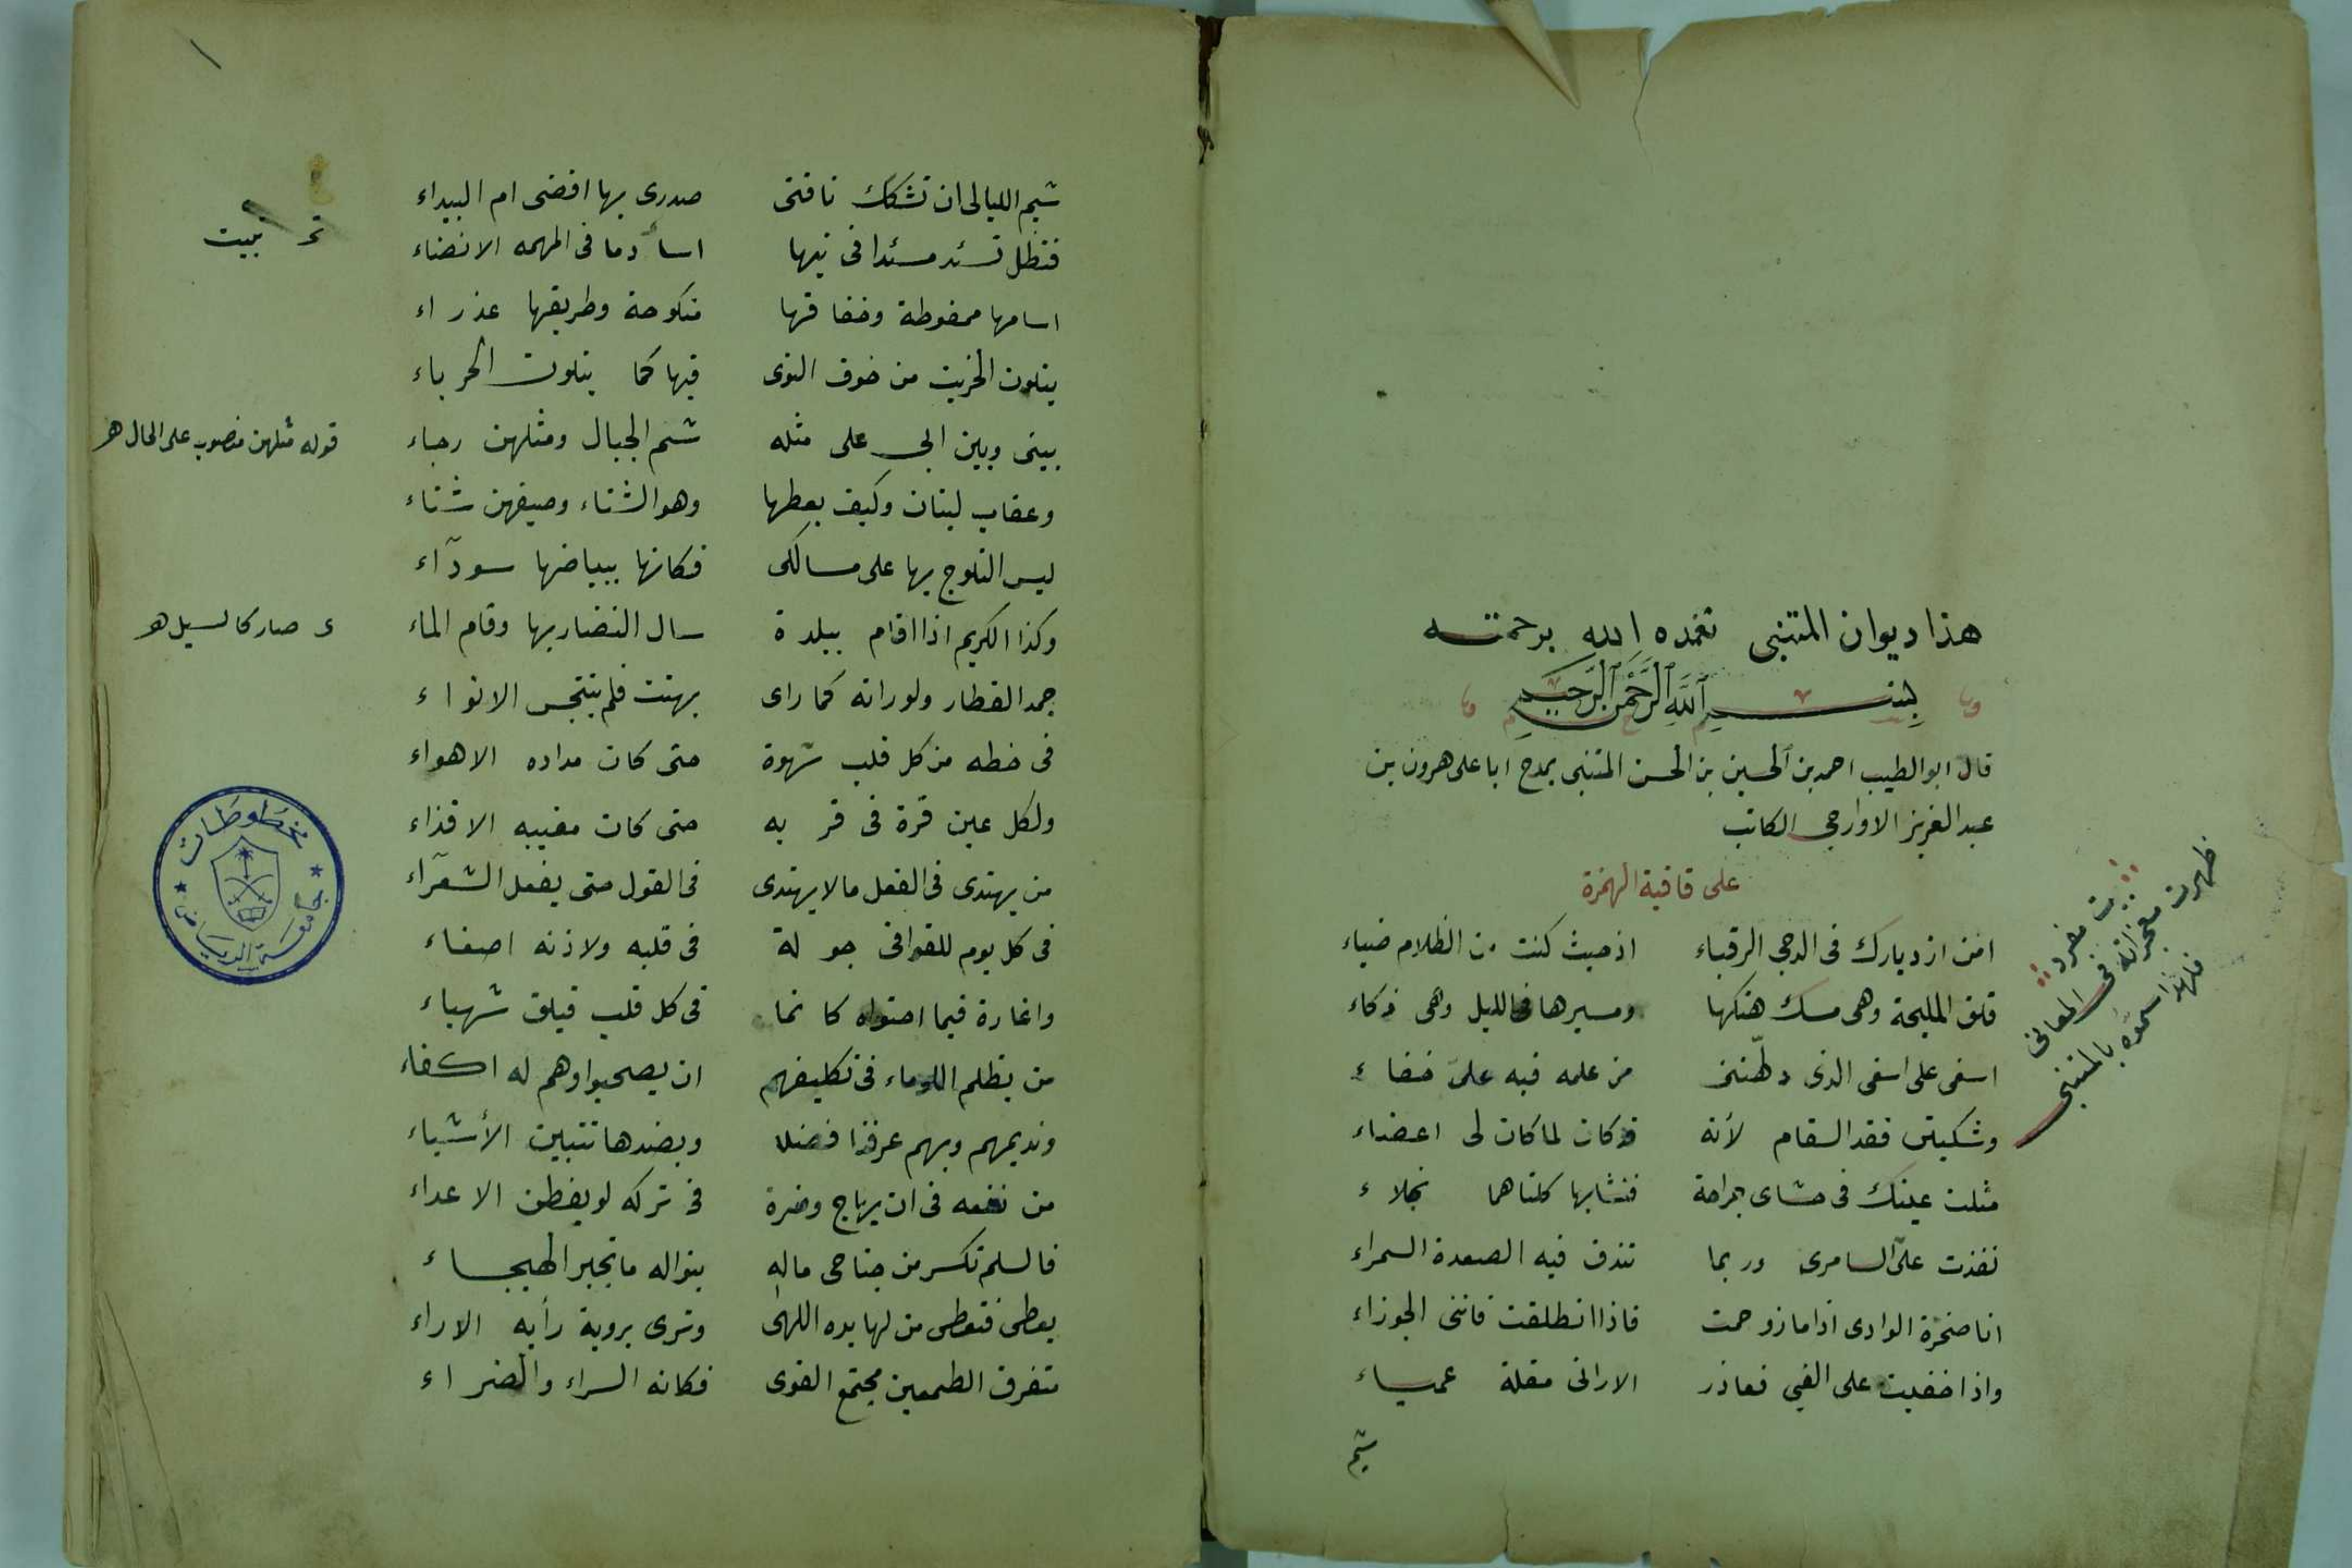 هذا ديوان المتنبى تغمده الله برحمته
بِسْمِ اللَّهِ الرَّحْمَنِ الرَّحِيمِ
قال ابو الطيب احمد بن الحسين بن الحسن المتنبى يمدح ابا على هرون بن
عبد العزيز الاوارجى الكاتب
على قافية الهمزة
امن ازديارك فى الدجى الرقباء اذ حيث كنت من الظلام ضياء
قلق المليحة وهى مسك هتكها ومسيرها فى الليل وهى ذكاء
اسفى على اسفى الذى دلّهتنى من علمه فبه علىّ خفاء
وشكيتى فقد السقام لأنه قد كان لما كان لى اعضاء
مثلت عينك فى حشاى جراحة فتشابها كلتاهما نجلاء
نفذت علىّ السابرى وربما تندق فيه الصعدة السمراء
انا صخرة الوادى اذا ما زوحمت فاذا انطلقت فاننى الجوزاء
واذا خفيت على الغبى فعاذر الا ترانى مقلة عمياء
شيم
مفرد
ظهرت معجزاته فى المعانى
فلهذا سموه بالمتنبى
١
شيم الليالى ان تشكك ناقتى صدرى بها افضى ام البيداء
فتظل تسئد مسئدا فى نيها اسأدها فى المهمه الانضاء
تبيت
انساعها ممغوطة وخفافها منكوحة وطريقها عذراء
يتلون الخريت من خوف التوى فيها كما يتلون الحرباء
بينى وبين ابى على مثله شم الجبال ومثلهن رجاء
قوله مثلهن منصوب على الحال هـ
وعقاب لبنان وكيف بقطعها وهو الشتاء وصيفهن شتاء
لبس الثلوج بها على مسالكى فكانها ببياضها سودآء
وكذا الكريم اذا اقام ببلدة سال النضار بها وقام الماء
صار كالسيل هـ
جمد القطار ولو راته كما راى بهتت فلم تتبجس الانواء
فى خطه من كل قلب شهوة حتى كان مداده الاهواء
ولكل عين قرة فى قربه حتى كان مغيبه الاقذاء
من يهتدى فى الفعل ما لا يهتدى فى القول حتى يفعل الشعرآء
فى كل يوم للقوافى جولة فى قلبه ولاذنه اصغاء
واغارة فيما احتواه كانما فى كل قلب فيلق شهباء
من يظلم اللؤماء فى تكليفهم ان يصبحوا وهم له اكفاء
ونذيمهم وبهم عرفنا فضله وبضدها تتبين الأشياء
من نفعه فى ان يهاج وضره فى تركه لو يفطن الاعداء
فالسلم تكسر من جناحى ماله بنواله ما تجبر الهيجاء
يعطى فتعطى من لها يده اللهى وترى بروية رأيه الاراء
متفرق الطعمين مجتمع القوى فكانه السراء والضراء
مخطوطات
جامعة الرياض